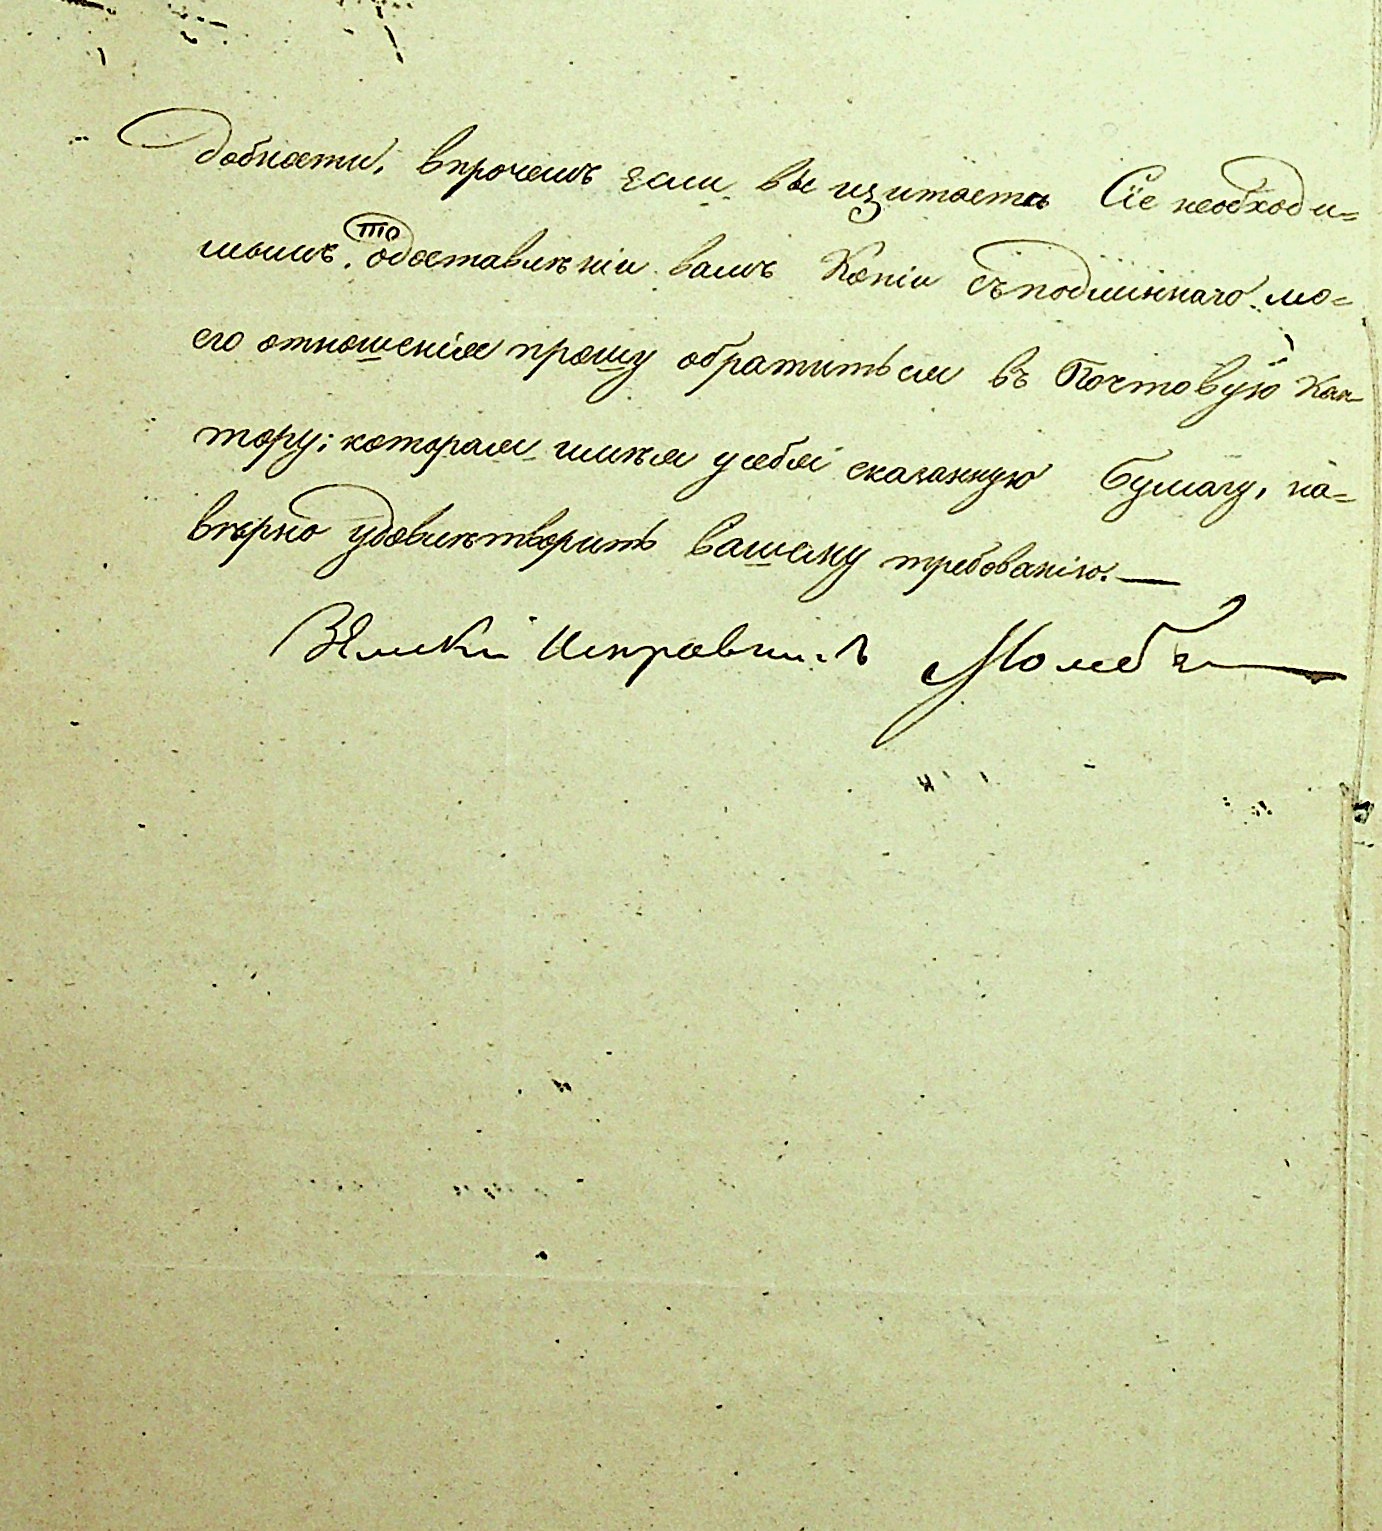 добности, впрочемъ если вы щитаете Сіе необходи=
мымъ, то одоставленіи вамъ Копіи съподлиннаго мо=
его отношенія прошу обратиться въ Почтовую Кон-
тору; которая имея усебя сказанную бумагу, на=
верно удовлетворитъ вашему требованію.—
Земскій Исправникъ